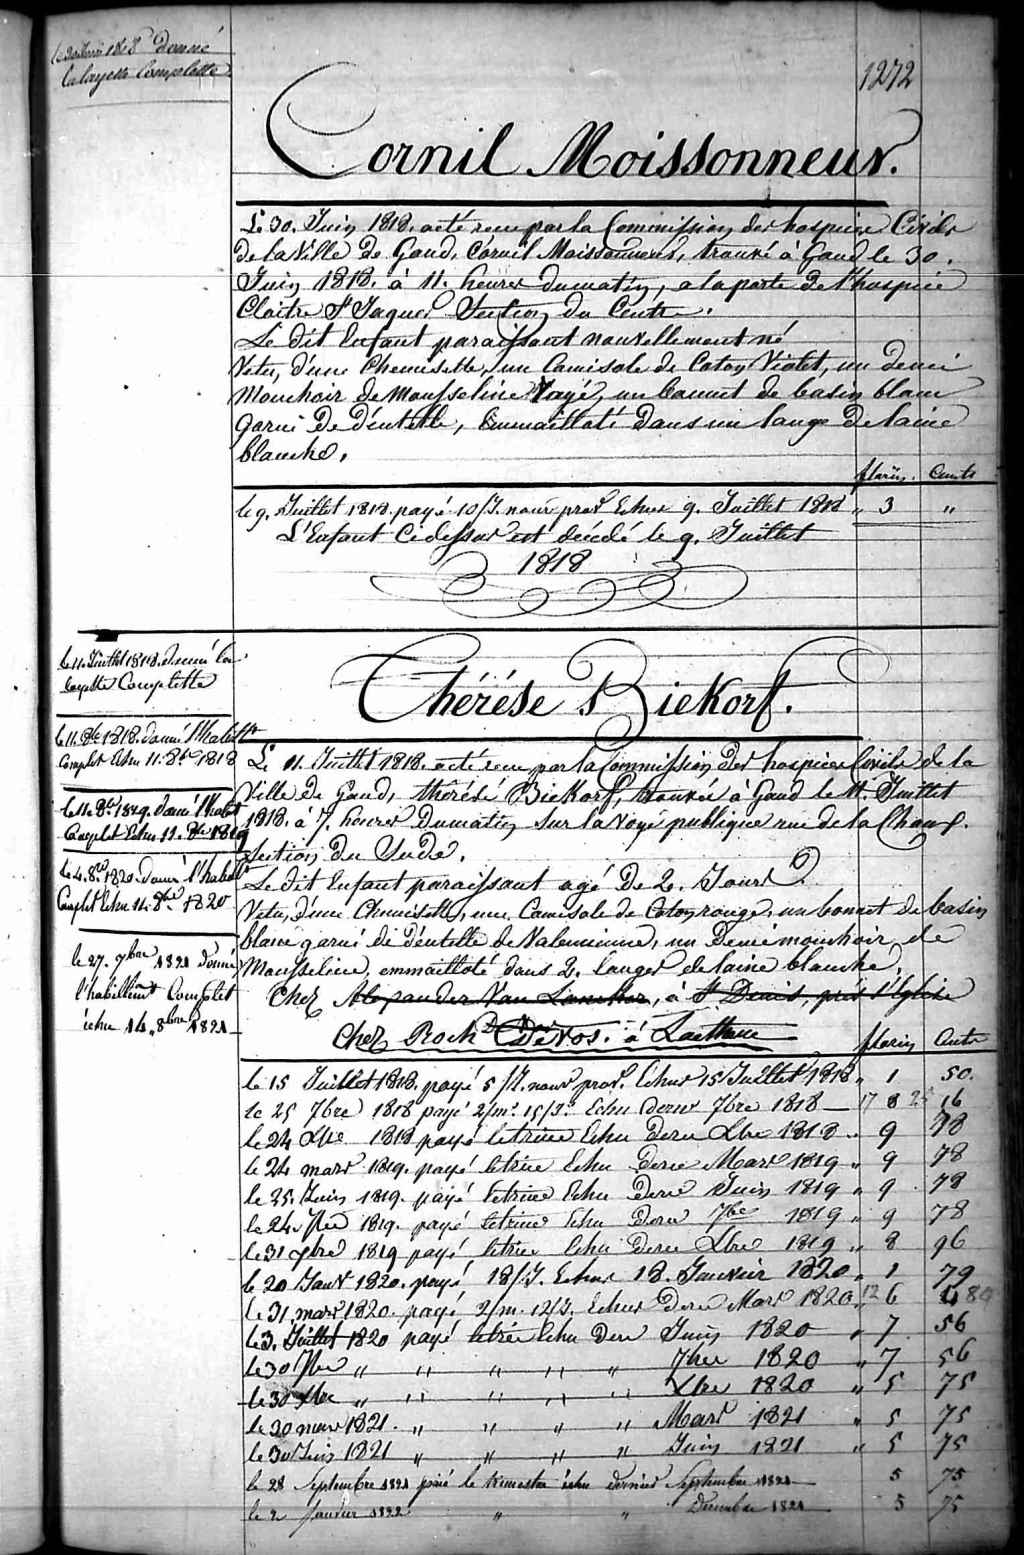 le 30 Juin 1818 donné
la layette Complette
1272
Cornil Moissonneur.
Le 30. Juin 1818. acté recu par la Commission des hospices Civils
de la Ville de Gand, Cornil Moissonneur, trouvé à Gand le 30.
Juin 1818. à 11. heures du matin, a la porte de l'hospice
Cloitre St Jaques Section du Centre.
Le dit Enfant paraissant nouvellement né
Vetu, d'une Chemisette, un Camisole de Coton Violet, un demi
Mouchoir de Mousseline rayé, un bonnet de basin blanc
garni De Déntelle, Emmailloté dans un lange De laine
blanche.
florins. Cents
le 9. Juillet 1818. payé 10/J. nour prov Echus 9. Juillet 1818 " 3 "
L'Enfant Cidessus est décédé le 9. Juillet
1818
le 11. Juillet 1818. donné la
layette Complette
Thérése Biekorf.
le 11. 8bre 1818. donné l'habillt
Complet Echu 11. 8bre 1818
le 11. 8bre 1819. donné l'habillt
Complet Echu 11. 8bre 1819
le 4. 8bre 1820. donné l'habillt
Complet Echu 11. 8bre 1820
le 27. 7bre 1821 donné
l'habillemt Complet
échu 11. 8bre 1821
Le 11. Juillet 1818. acté recu par la Commission Des hospices Civils de la
Ville de Gand, thérésé Biekorf, trouvée à Gand le 11. Juillet
1818. à 7. heures Du matin sur la Voye publique rue de la
Section du Sude.
Le dit Enfant paraissant agé De 2. Jours
Vetu, d'une Chemisette, une Camisole de Coton rouge, un bonnet de basin
blanc garni de Déntelle de Valencienne, un Demi mouchoir de
Mousseline, emmailloté dans 2. langes de laine blanche.
Chez Alexander Van, à St Denis, près l'Eglise
Chez Roch DeVos. à Laethem
florins Cents
le 15 Juillet 1818. payé 5/J. nour prov. Echus 15 Juillet 1818 " 1 50.
le 25 7bre 1818 payé 2/m. 15/J. Echu dernr 7bre 1818 — 17 8 25 16
le 24 Xbre 1818 payé letrime Echu derne Xbre 1818 " 9 78
le 24 mars 1819. payé letrime Echu derne Mars 1819 " 9 78
le 25. Juin 1819. payé letrime Echu derne Juin 1819 " 9 78
le 24. 7bre 1819. payé letrime Echu derne 7bre 1819 " 9 78
le 31 Xbre 1819 payé letrime Echu derne Xbre 1819 " 8 96
le 20 Janv 1820. payé 18/J. Echus 18. Janvier 1820 " 1 79
le 31 mars 1820. payé 2/m. 12/J. Echus derne Mars 1820 " 12 6 80
le 3. Juillet 1820 payé letrime Echu derne Juin 1820 " 7 56
le 30 7bre " " " " " 7bre 1820 " 7 56
le 30 Xbre " " " " " Xbre 1820 " 5 75
le 30 mars 1821. " " " " Mars 1821 " 5 75
le 30 Juin 1821 " " " " Juin 1821 " 5 75
le 28 Septembre 1821 paié le trimestre échu dernier Septembre 1821 5 75
le 2 Janvier 1822 " " Décembre 1821 5 75